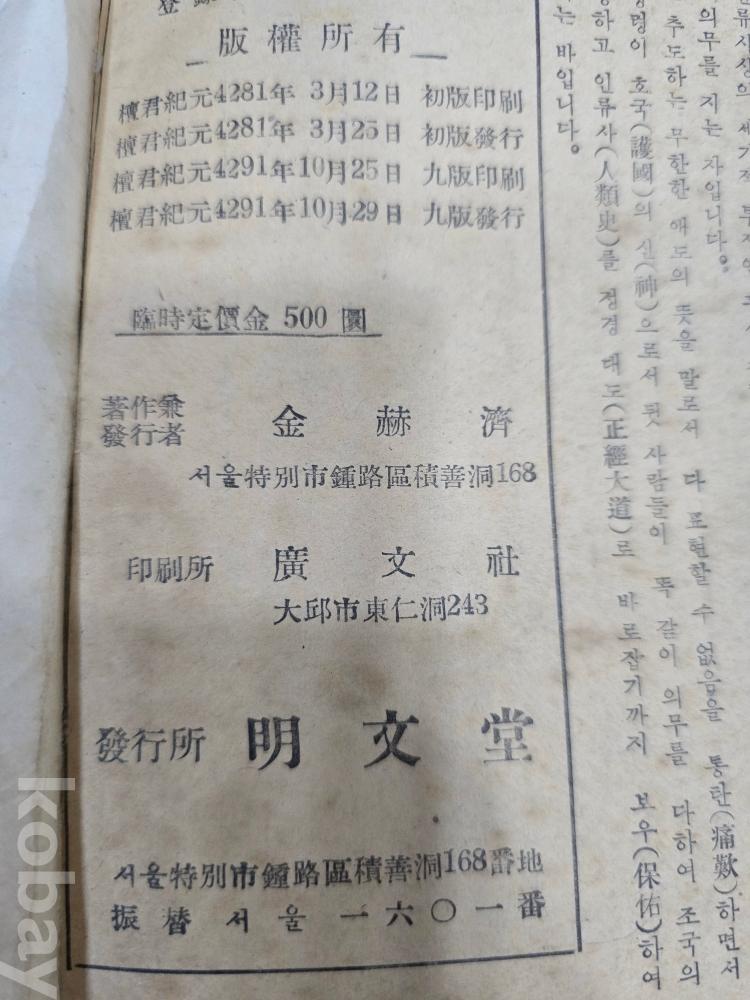 登錄
版權所有
檀君紀元4281年 3月12日 初版印刷
檀君紀元4281年 3月25日 初版發行
檀君紀元4291年10月25日 九版印刷
檀君紀元4291年10月29日 九版發行
臨時定價金 500 圜
著作兼
發行者 金赫濟
서울特別市鍾路區積善洞168
印刷所 廣文社
大邱市東仁洞243
發行所 明文堂
서울特別市鍾路區積善洞168番地
振替 서울 一六〇一番
의무를 지는 자입니다。
추도하는 무한한 애도의 뜻을 말로서 다 표현할 수 없음을 통탄(痛歎)하면서
호국(護國)의 신(神)으로서 뒷 사람들이 똑 같이 의무를 다하여 조국의
하고 인류사(人類史)를 정경 대도(正經大道)로 바로잡기까지 보우(保佑)하여
는 바입니다。
kobay